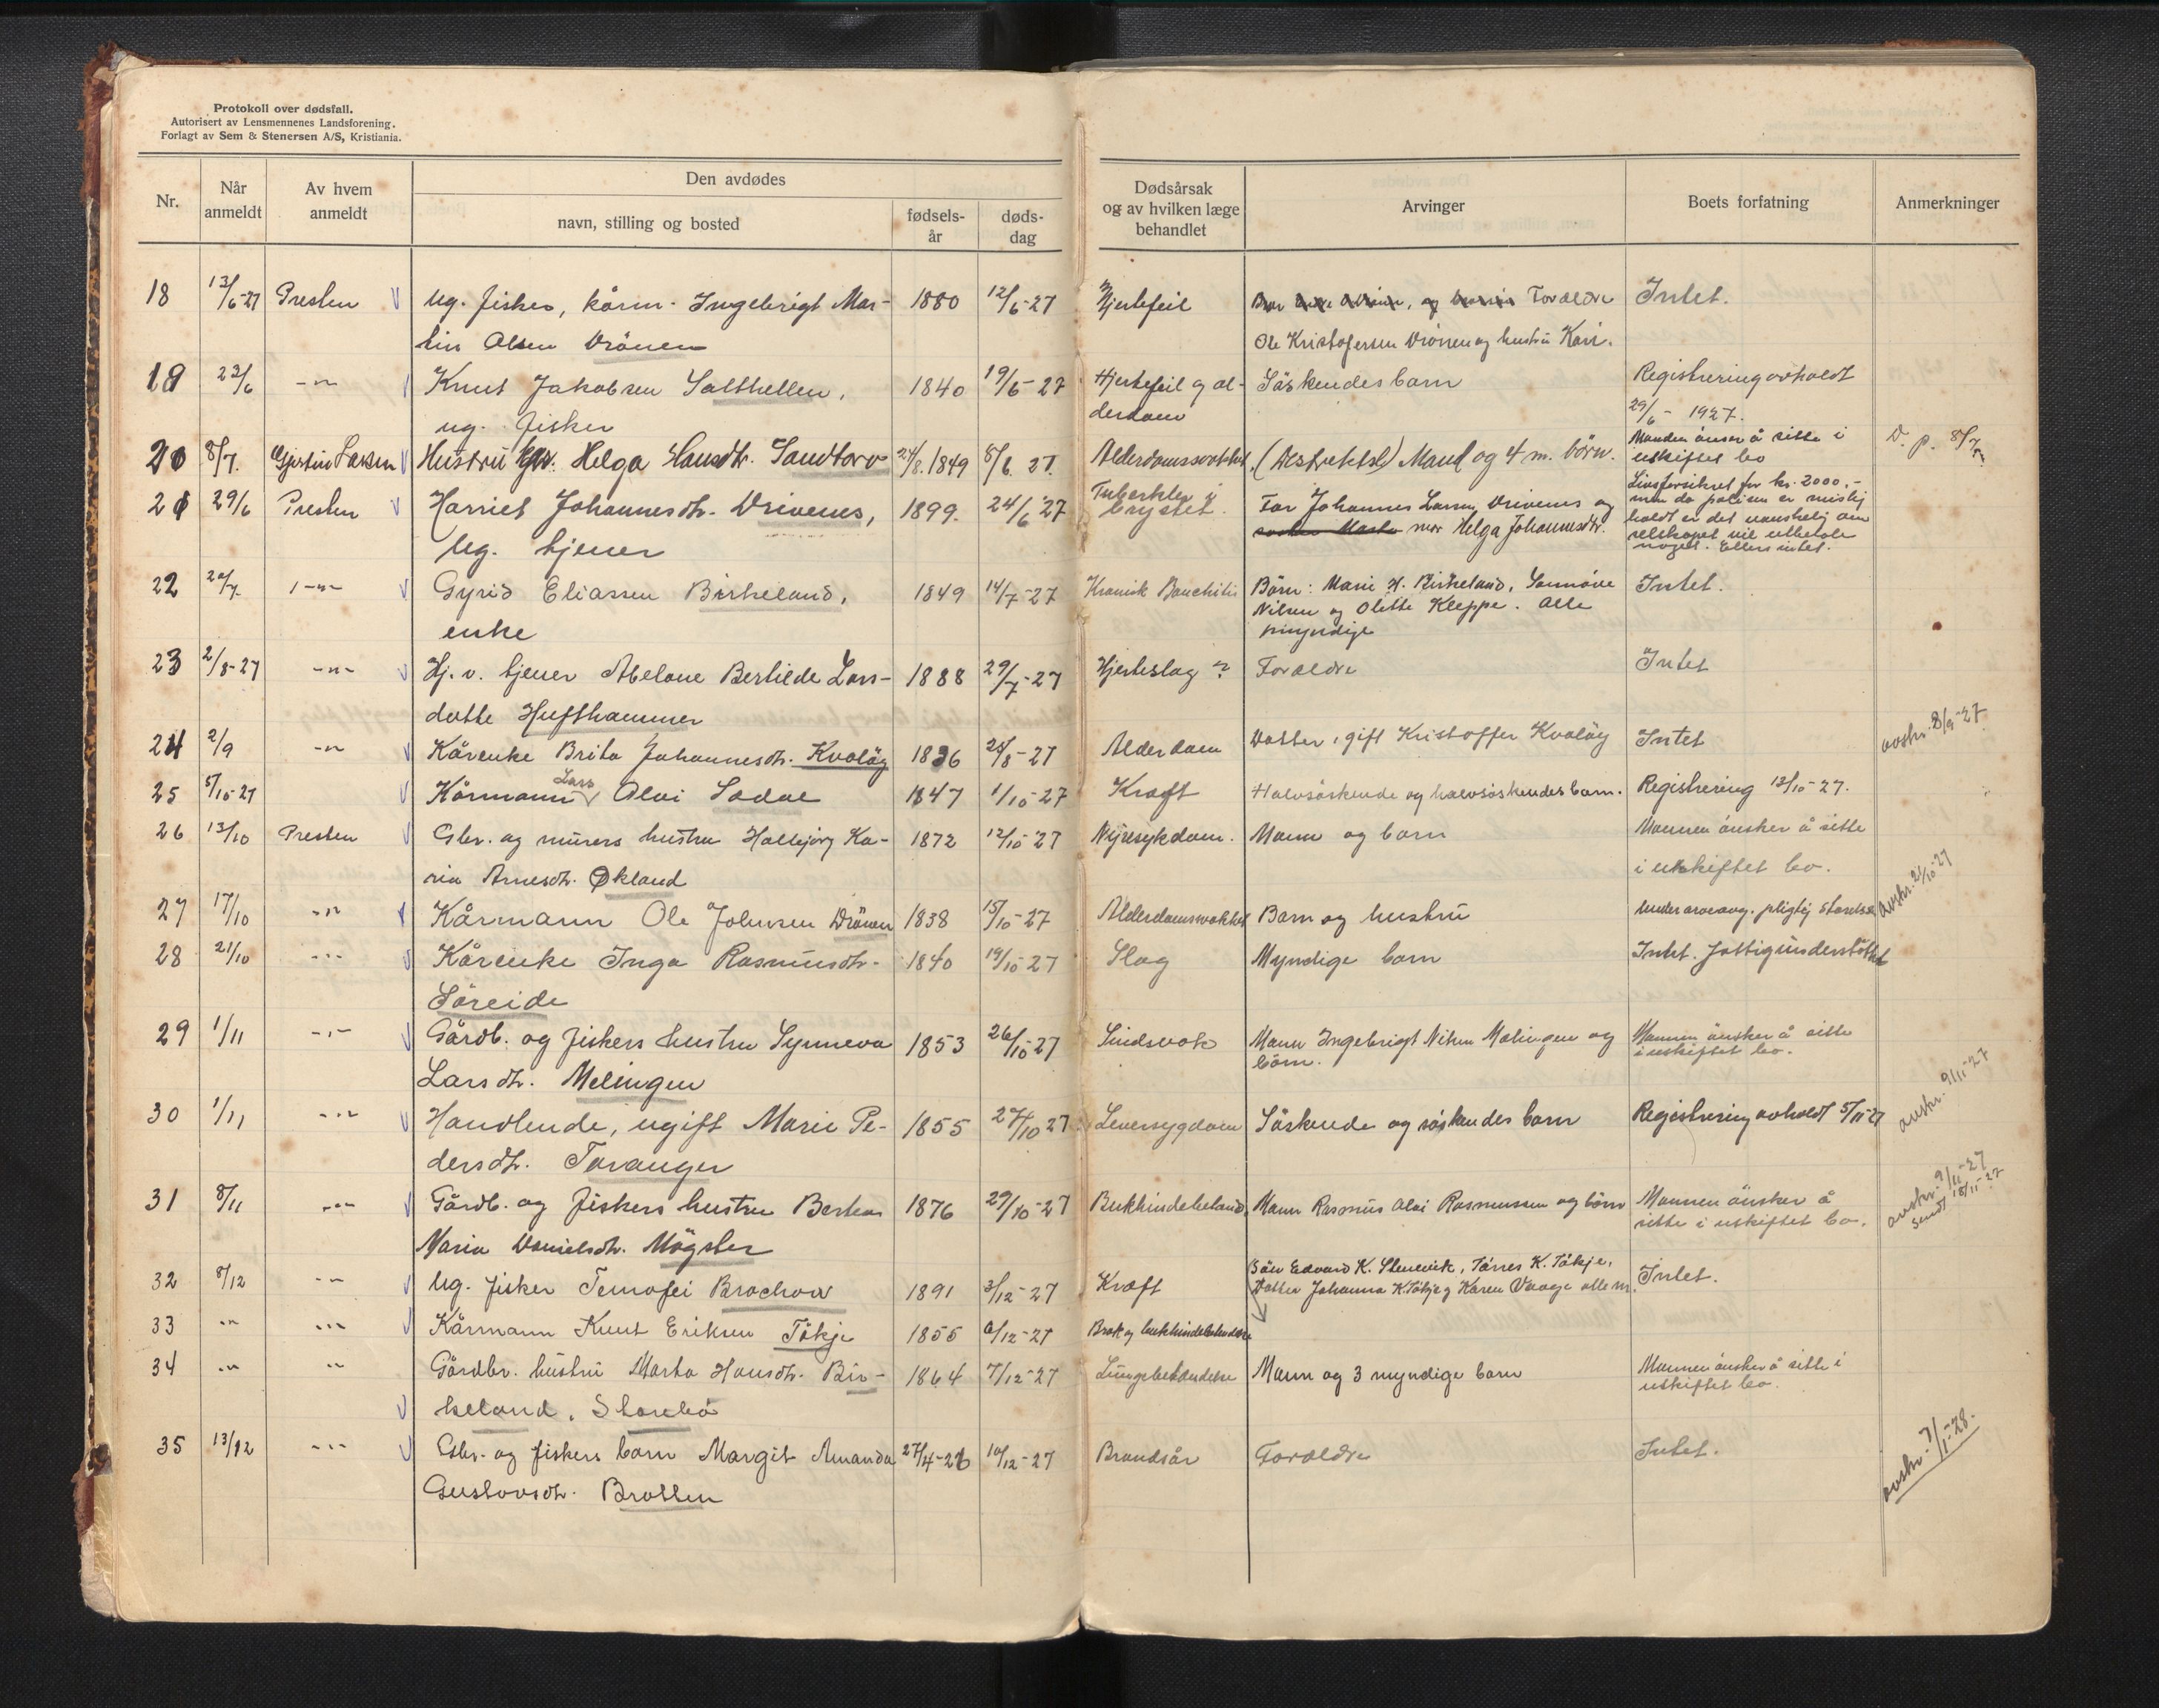 Protokoll over dødsfall.
Autorisert av Lensmennenes Landsforening.
Forlagt av Sem & Stenersen A/S, Kristiania.
Nr. Når anmeldt Av hvem anmeldt Den avdødes navn, stilling og bosted fødselsår dødsdag Dødsårsak og av hvilken læge behandlet Arvinger Boets forfatning Anmerkninger
18 13/6-27 Presten Ug. fisker, kårm. Ingebrigt Mar- 1880 12/6-27 Hjertefeil Foreldre Intet.
tin Olsen Drönen Ole Kristofersen Drönen og hustru Kari.
19 23/6 -"- Knut Jakobsen Salthellen, 1840 19/6-27 Hjertefeil og al- Söskendes barn Registrering avholdt
ug. fisker derdom 29/6 - 1927.
20 8/7. Hustru Helga Hansdtr. Sandtorv 24/8.1849 8/6.27. Alderdomssvakhet. Mand og 4 m. börn. Manden önsker å sitte i
uskiftet bo
21 29/6 Presten Harriet Johannesdtr. Drivenes, 1899. 24/6'27 Tuberkler i Far Johannes Larsen Drivenes og Livsforsikret for kr. 2000,-
ug. tjener brystet. mor Helga Johannesdtr. men da polisen er mislig-
holdt er det vanskelig om
selskapet vil utbetale
noget. Ellers intet.
22 20/7 -"- Gyrid Eliassen Birkeland, 1849 14/7-27 Kronisk Bronchitis Börn: Marie H. Birkeland, Sannöve Intet.
enke Nilsen og Olette Kleppe. Alle
myndige
23 2/8-27 -"- Hj. v. tjener Abelone Bertilde Lars- 1888 29/7-27 Hjerteslag ? Foreldre Intet
datte Hufthammer
24 2/9 -"- Kårenke Brita Johannesdtr. Kvaløy 1836 28/8-27 Alderdom Datter, gift Kristoffer Kvaløy Intet avskr. 8/9-27
25 8/10-27 Kårmann Lars Olai Lodve 1847 1/10-27 Kræft Halvsöskende og halvsöskendes barn. Registrering 13/10-27.
26 13/10 Presten Gbr. og murers hustru Hallbjörg Ka- 1872 12/10-27 Nyresykdom. Mann og barn Mannen önsker å sitte
ria Arnesdtr. Økland i uskiftet bo. avskr. 21/10-27
27 17/10 -"- Kårmann Ole Johnsen Drönen 1838 15/10-27 Alderdomsvakhet Barn og hustru Under arveavg. pligtig störelse
28 21/10 -"- Kårenke Inga Rasmusdtr. 1840 19/10-27 Slag Myndige barn Intet. Fattigunderstöttet
Söreide
29 1/11 -"- Gårdb. og fiskers hustru Synneva 1853 26/10-27 Sindsvak Mann Ingebrigt Nilsen Melingen og Mannen önsker å sitte
Larsdtr. Melingen börn. i uskiftet bo.
30 1/11 -"- Handlende, ugift Marie Pe- 1855 27/10 27 Leversygdom Söskende og söskendes barn Registrering avholdt 5/11-27 avskr. 9/11-27
dersdtr. Tøranger
31 8/11 -"- Gårdb. og fiskers hustru Berta 1876 29/10-27 Bukhindebetænd. Mann Rasmus Olai Rasmussen og börn Mannen önsker å avskr. 9/11-27
Maria Danielsdtr. Mögster sitte i uskiftet bo. sendt 15/11-27
32 8/12 -"- Ug. fisker Temofei Brochow 1891 3/12-27 Kræft Sön Edvard K. Stenevik, Tönes K. Tökje, Intet.
Datter Johanna K. Tökje og Karen Vaage alle m.
33 -"- -"- Kårmann Knut Eriksen Tökje 1855 6/12-27 Brok og bukhindebetendelse
34 -"- -"- Gårdbr. hustru Marta Hansdtr. Bir- 1864 7/12-27 Lungebetændelse Mann og 3 myndige barn Mannen önsker å sitte i
keland, Storebö uskiftet bo.
35 13/12 -"- Gbr. og fiskers barn Margit Amanda 27/4-26 10/12-27 Brandsår Foreldre Intet. avskr. 7/1-28.
Gustavsdtr. Bratten